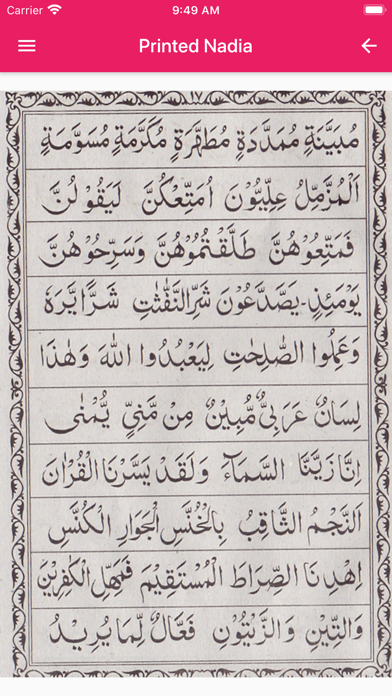 Carrier 9:49 AM
Printed Nadia
١٧
مُبَيَّنَةٍ مُمَدَّدَةٍ مُطَهَّرَةٍ مُكَرَّمَةٍ مُسَوَّمَةٍ
اَلْمُزَّمِّلُ عِلِّيُّوْنَ اُمَتِّعْكُنَّ لَيَقُوْلُنَّ
فَمَتِّعُوْهُنَّ طَلَّقْتُمُوْهُنَّ وَسَرِّحُوْهُنَّ
يَوْمَئِذٍ يَصَّدَّعُوْنَ شَرِّ النَّفّٰثٰتِ شَرًّا يَّرَهٗ
وَعَمِلُوا الصّٰلِحٰتِ لِيَعْبُدُوا اللّٰهَ وَهٰذَا
لِسَانٌ عَرَبِىٌّ مُّبِيْنٌ مِنْ مَّنِىٍّ يُّمْنٰى
اِنَّا زَيَّنَّا السَّمَآءَ وَلَقَدْ يَسَّرْنَا الْقُرْاٰنَ
اَلنَّجْمُ الثَّاقِبُ بِالْخُنَّسِ الْجَوَارِ الْكُنَّسِ
اِهْدِنَا الصِّرَاطَ الْمُسْتَقِيْمَ فَمَهِّلِ الْكٰفِرِيْنَ
وَالتِّيْنِ وَالزَّيْتُوْنِ فَعَّالٌ لِّمَا يُرِيْدُ